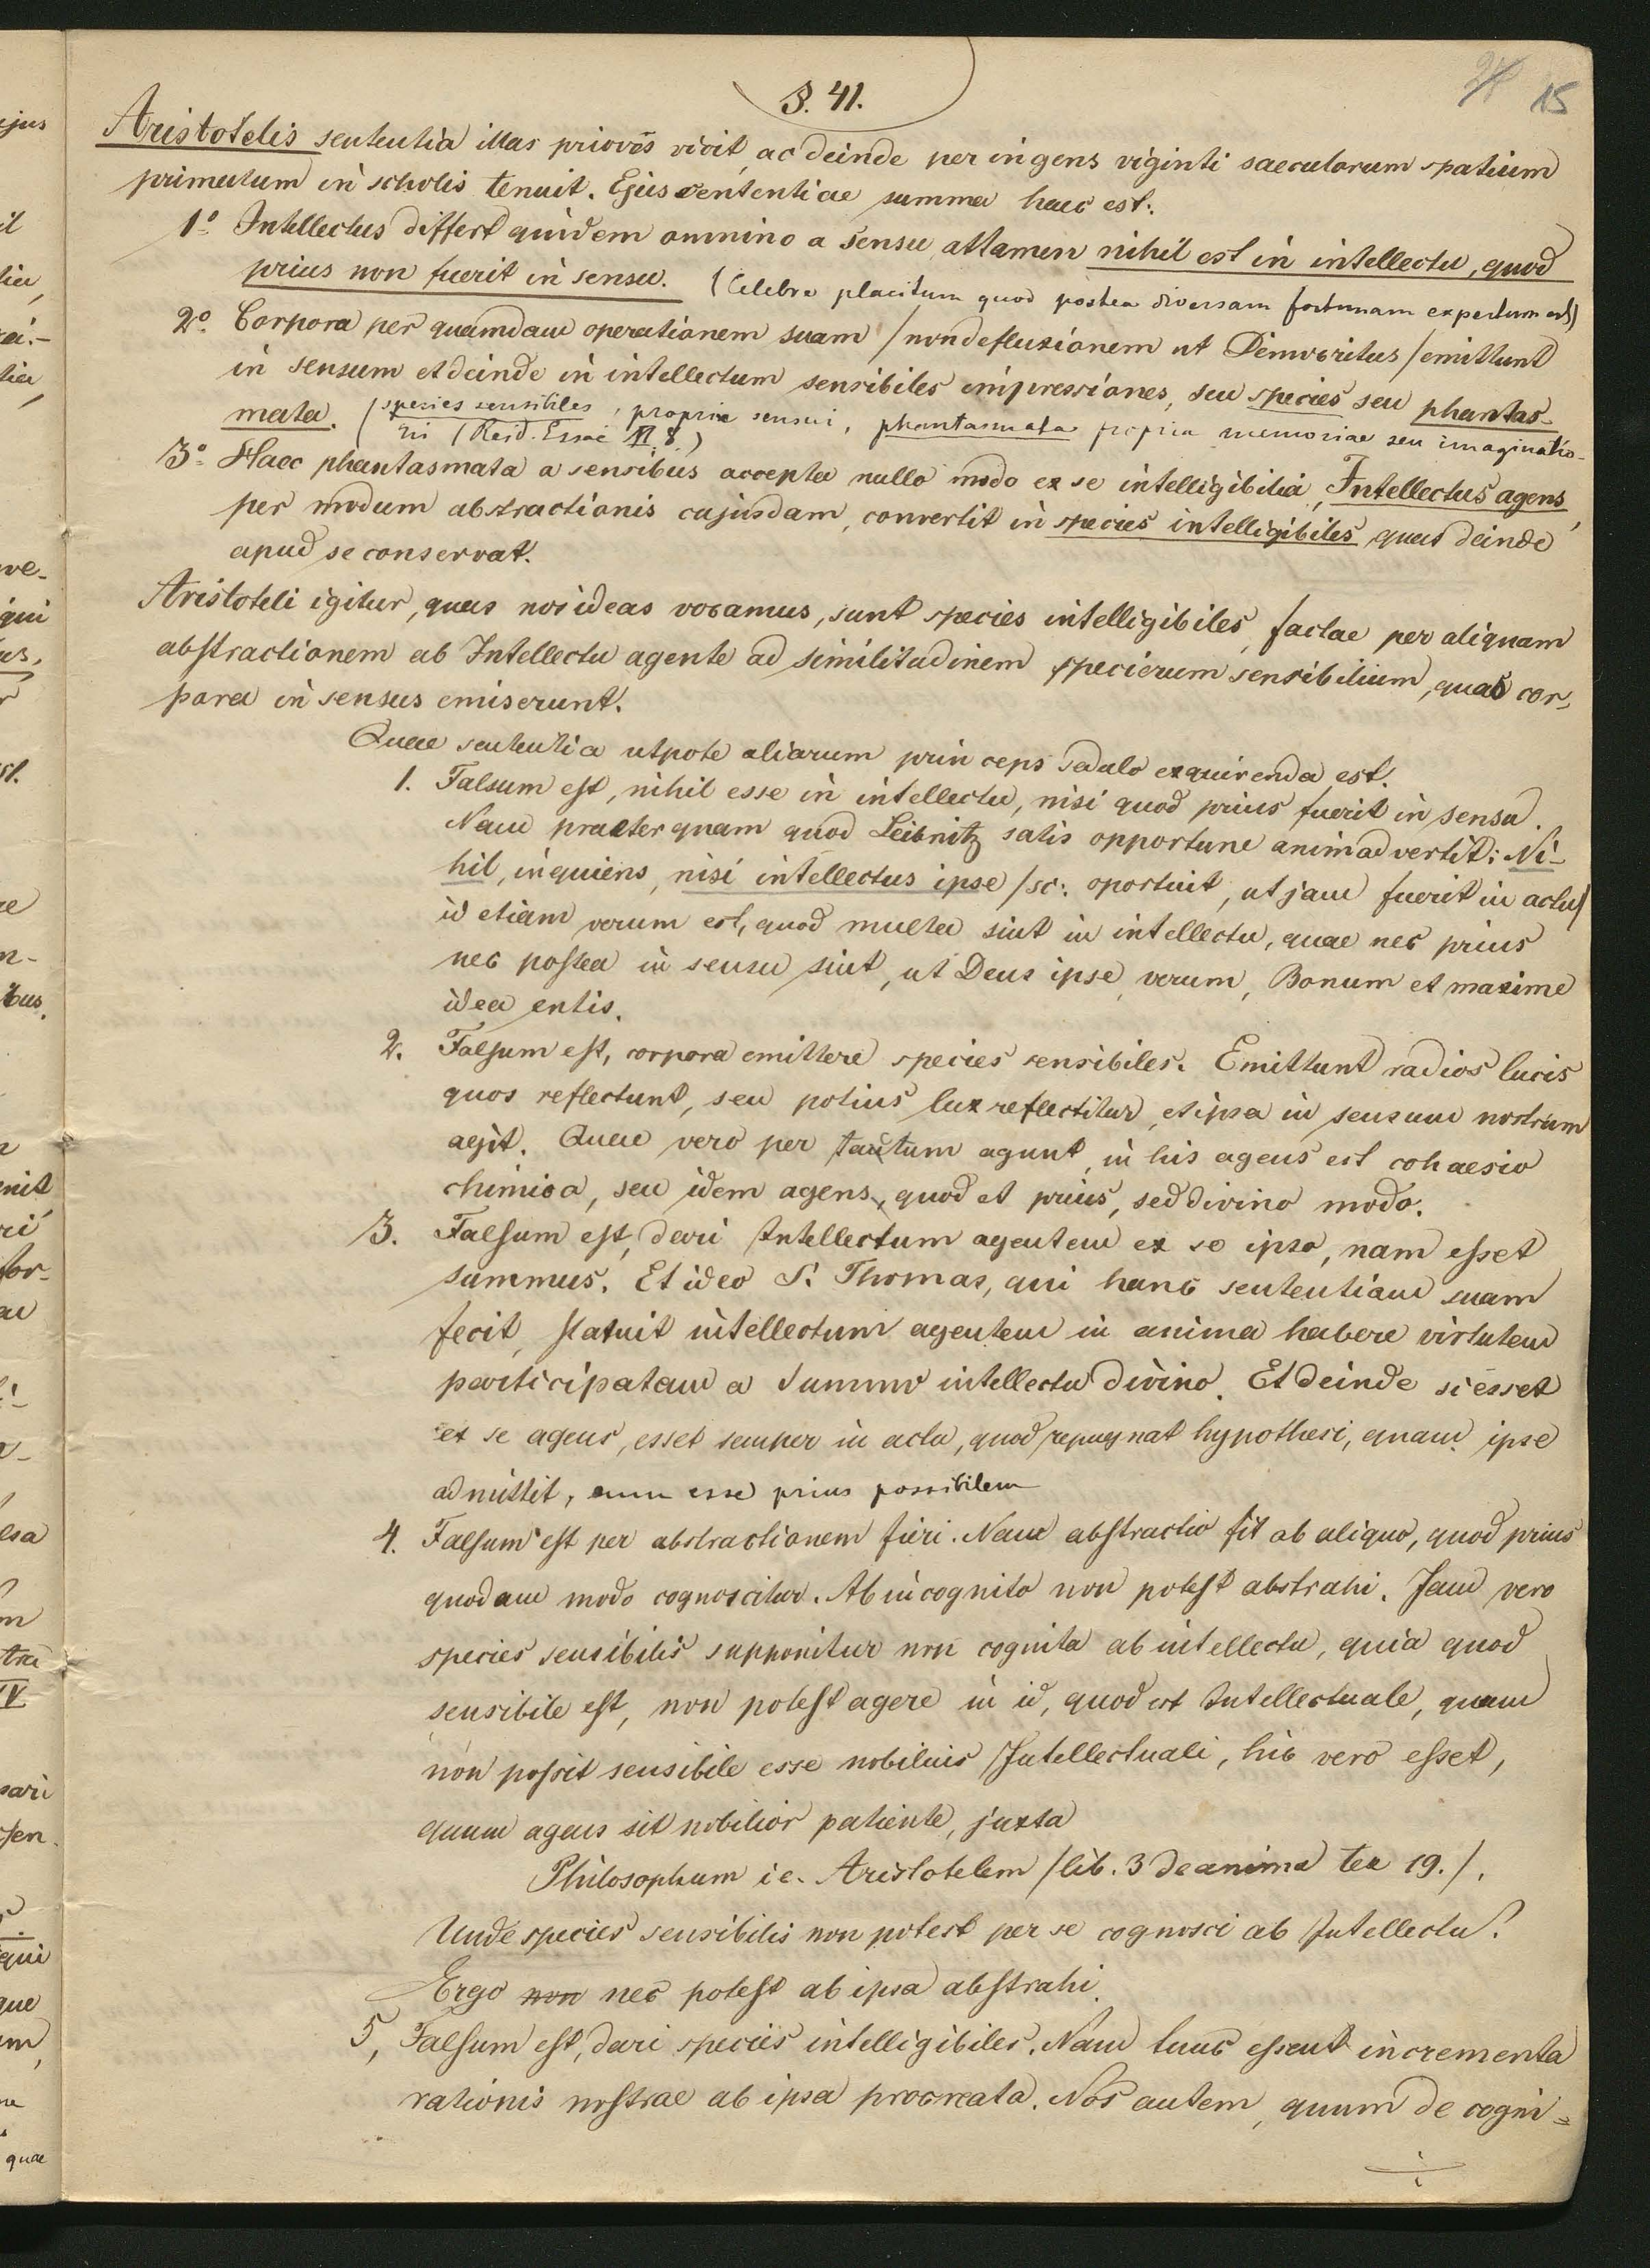 27 15
§. 41.
Aristotelis sententia illas priores vicit, ac deinde per ingens viginti saecularum spatium
primatum in scholis tenuit. Ejus sententiae summa haec est:
1º Intellectus differt quidem omnino a sensu attamen nihil est in intellectu, quod
prius non fuerit in sensu. (Celebre placitum quod postea diversam fortunam expertum est)
2º. Corpora per quamdam operationem suam /non defluxionem ut Democritus/ emittunt
in sensum et deinde in intellectum sensibiles impressiones, seu species seu phantas-
mata. (species sensibiles, propriae sensui, phantasmata propria memoriae seu imaginatio-
ni (Reid. Essai II 8)
3º Haec phantasmata a sensibus accepta nullo modo ex se intelligibilia, Intellectus agens,
per modum abstractionis cujusdam, convertit in species intelligibiles quas deinde
apud se conservat.
Aristoteli igitur, quas nos ideas vocamus, sunt species intelligibiles, factae per aliquam
abstractionem ab Intellectu agente ad similitudinem specierum sensibilium, quas cor-
pora in sensus emiserunt.
Quae sententia utpote aliarum princeps sedulo exquirenda est.
1. Falsum est, nihil esse in intellectu, nisi quod prius fuerit in sensu.
Nam praeterquam quod Leibnitz satis opportune animadvertit: Ni-
hil, inquiens, nisi intellectus ipse /sc: oportuit, ut jam fuerit in actu/
id etiam verum est, quod multa sint in intellectu, quae nec prius
nec postea in sensu sint, ut Deus ipse, verum, Bonum et maxime
idea entis.
2. Falsum est, corpora emittere species sensibiles. Emittunt radios lucis
quos reflectunt, seu potius lux reflectitur, et ipsa in sensum nostrum
agit. Quae vero per tactum agunt, in his agens est cohaesio
chimica, seu idem agens, quod et prius, sed divino modo.
3. Falsum est, dari Intellectum agentem ex se ipso, nam esset
summus. Et ideo S. Thomas, qui hanc sententiam suam
fecit, statuit intellectum agentem in anima habere virtutem
participatam a Summo intellectu divino. Et deinde si esset
ex se agens, esset semper in actu, quod repugnat hypothesi, quam ipse
admittit, eum esse prius possibilem
4. Falsum est per abstractionem fieri. Nam abstractio fit ab aliquo, quod prius
quodam modo cognoscitur. Ab incognito non potest abstrahi. Jam vero
species sensibilis supponitur non cognita ab intellectu, quia quod
sensibile est, non potest agere in id, quod est Intellectuale, quum
non possit sensibile esse nobilius Intellectuali, hic vero esset,
quum agens sit nobilior patiente, juxta
Philosophum i e. Aristotelem /lib. 3 de anima tex 19./.
Unde species sensibilis non potest per se cognosci ab Intellectu?
Ergo non nec potest ab ipsa abstrahi.
5, Falsum est, dari species intelligibiles. Nam tunc essent incrementa
rationis nostrae ab ipsa procreata. Nos autem, quum de cogni=